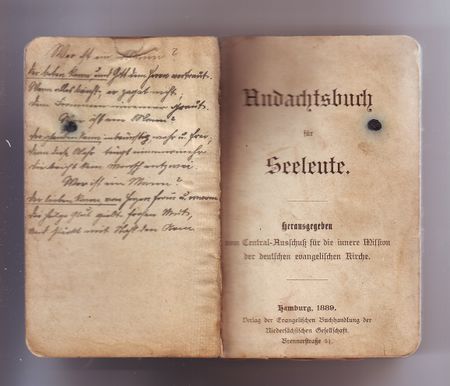 Wer ist ein Mann?
Der beten kann und Gott dem Herrn vertraut.
Wann alles bricht, er zaget nicht;
dem Frommen nimmer graut.
Wer ist ein Mann?
Der glauben kann inbrünstig, wahr u. frei,
denn diese Wehr trügt nimmermehr
die bricht kein Mensch entzwei.
Wer ist ein Mann?
Der lieben kann von Herzen fromm u. warm
die heilge Glut giebt hohen Mut,
und stärkt mit Stahl den Arm
Andachtsbuch
für
Seeleute.
Herausgegeben
vom Central-Ausschuß für die innere Mission
der deutschen evangelischen Kirche.
Hamburg, 1889.
Verlag der Evangelischen Buchhandlung der
Niedersächsischen Gesellschaft.
Brennerstraße